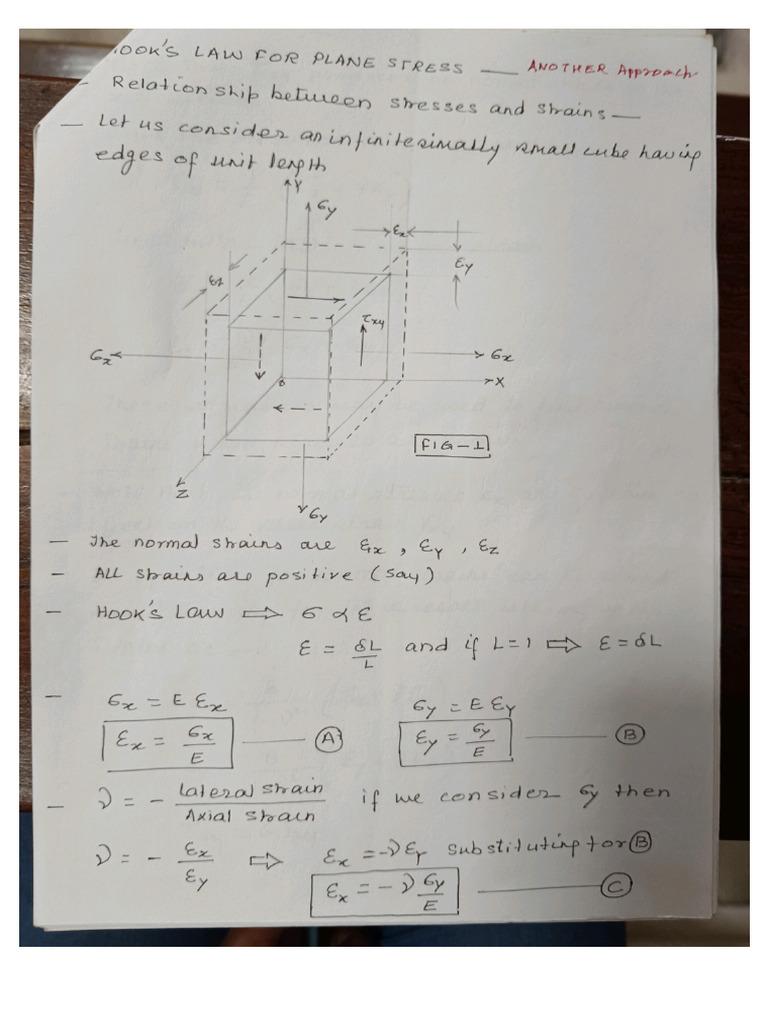 HOOK'S LAW FOR PLANE STRESS — ANOTHER Approach
- Relationship between stresses and strains —
- Let us consider an infinitesimally small cube having
edges of unit length
Y
σy
εx
εy
εz
τxy
σx
σx
0
X
FIG-1
Z
σy
- The normal strains are εx, εy, εz
- ALL strains are positive (say)
- HOOK'S LAW ⇒ σ ∝ ε
ε = δL/L and if L=1 ⇒ ε = δL
- σx = E εx σy = E εy
εx = σx/E — (A) εy = σy/E — (B)
- ν = - Lateral strain/Axial strain if we consider σy then
ν = - εx/εy ⇒ εx = -νεy substituting for (B)
εx = -ν σy/E — (C)